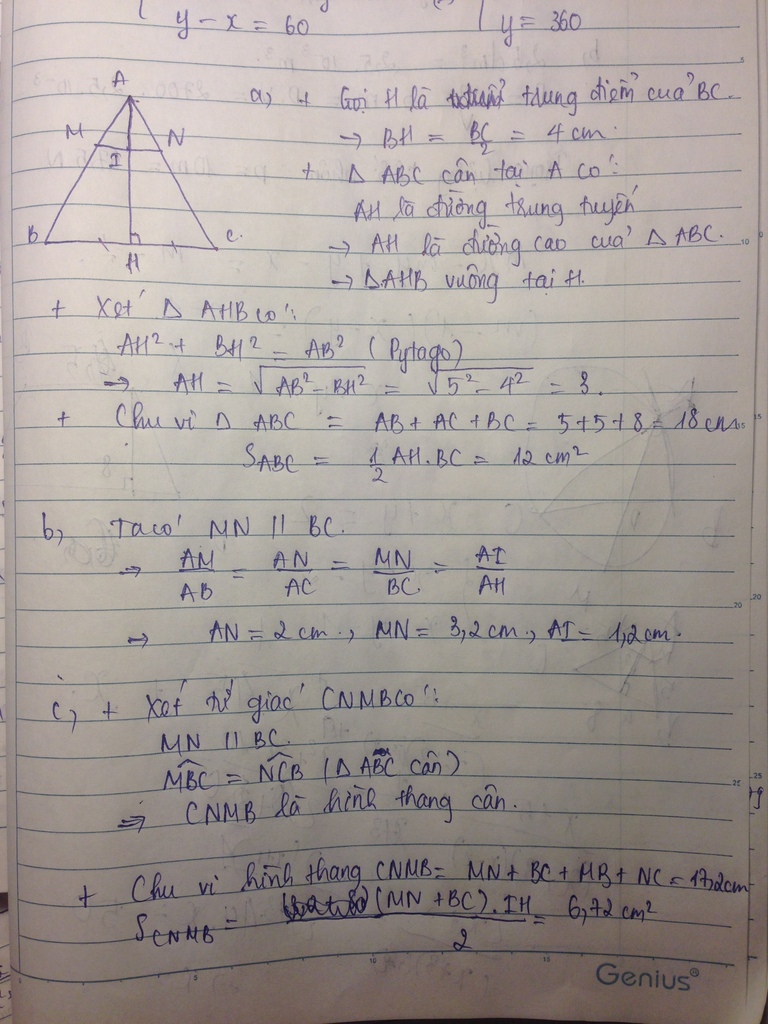 y - x = 60
y = 360
a, + Gọi H là trung điểm của BC.
→ BH = BC/2 = 4 cm.
+ Δ ABC cân tại A có:
AH là đường trung tuyến
→ AH là đường cao của Δ ABC.
→ ΔAHB vuông tại H.
A
M N
I
B C
H
+ Xét Δ AHB có:
AH² + BH² = AB² (Pytago)
⇒ AH = √(AB² - BH²) = √(5² - 4²) = 3.
+ Chu vi Δ ABC = AB + AC + BC = 5+5+8 = 18 cm
S_ABC = 1/2 AH.BC = 12 cm²
b, Ta có MN || BC.
⇒ AM/AB = AN/AC = MN/BC = AI/AH
⇒ AN = 2 cm, MN = 3,2 cm, AI = 1,2 cm.
c, + Xét tứ giác CNMB có:
MN || BC.
\widehat{MBC} = \widehat{NCB} (Δ ABC cân)
⇒ CNMB là hình thang cân.
+ Chu vi hình thang CNMB = MN + BC + MB + NC = 17,2cm
S_CNMB = (MN + BC).IH/2 = 6,72 cm²
Genius®